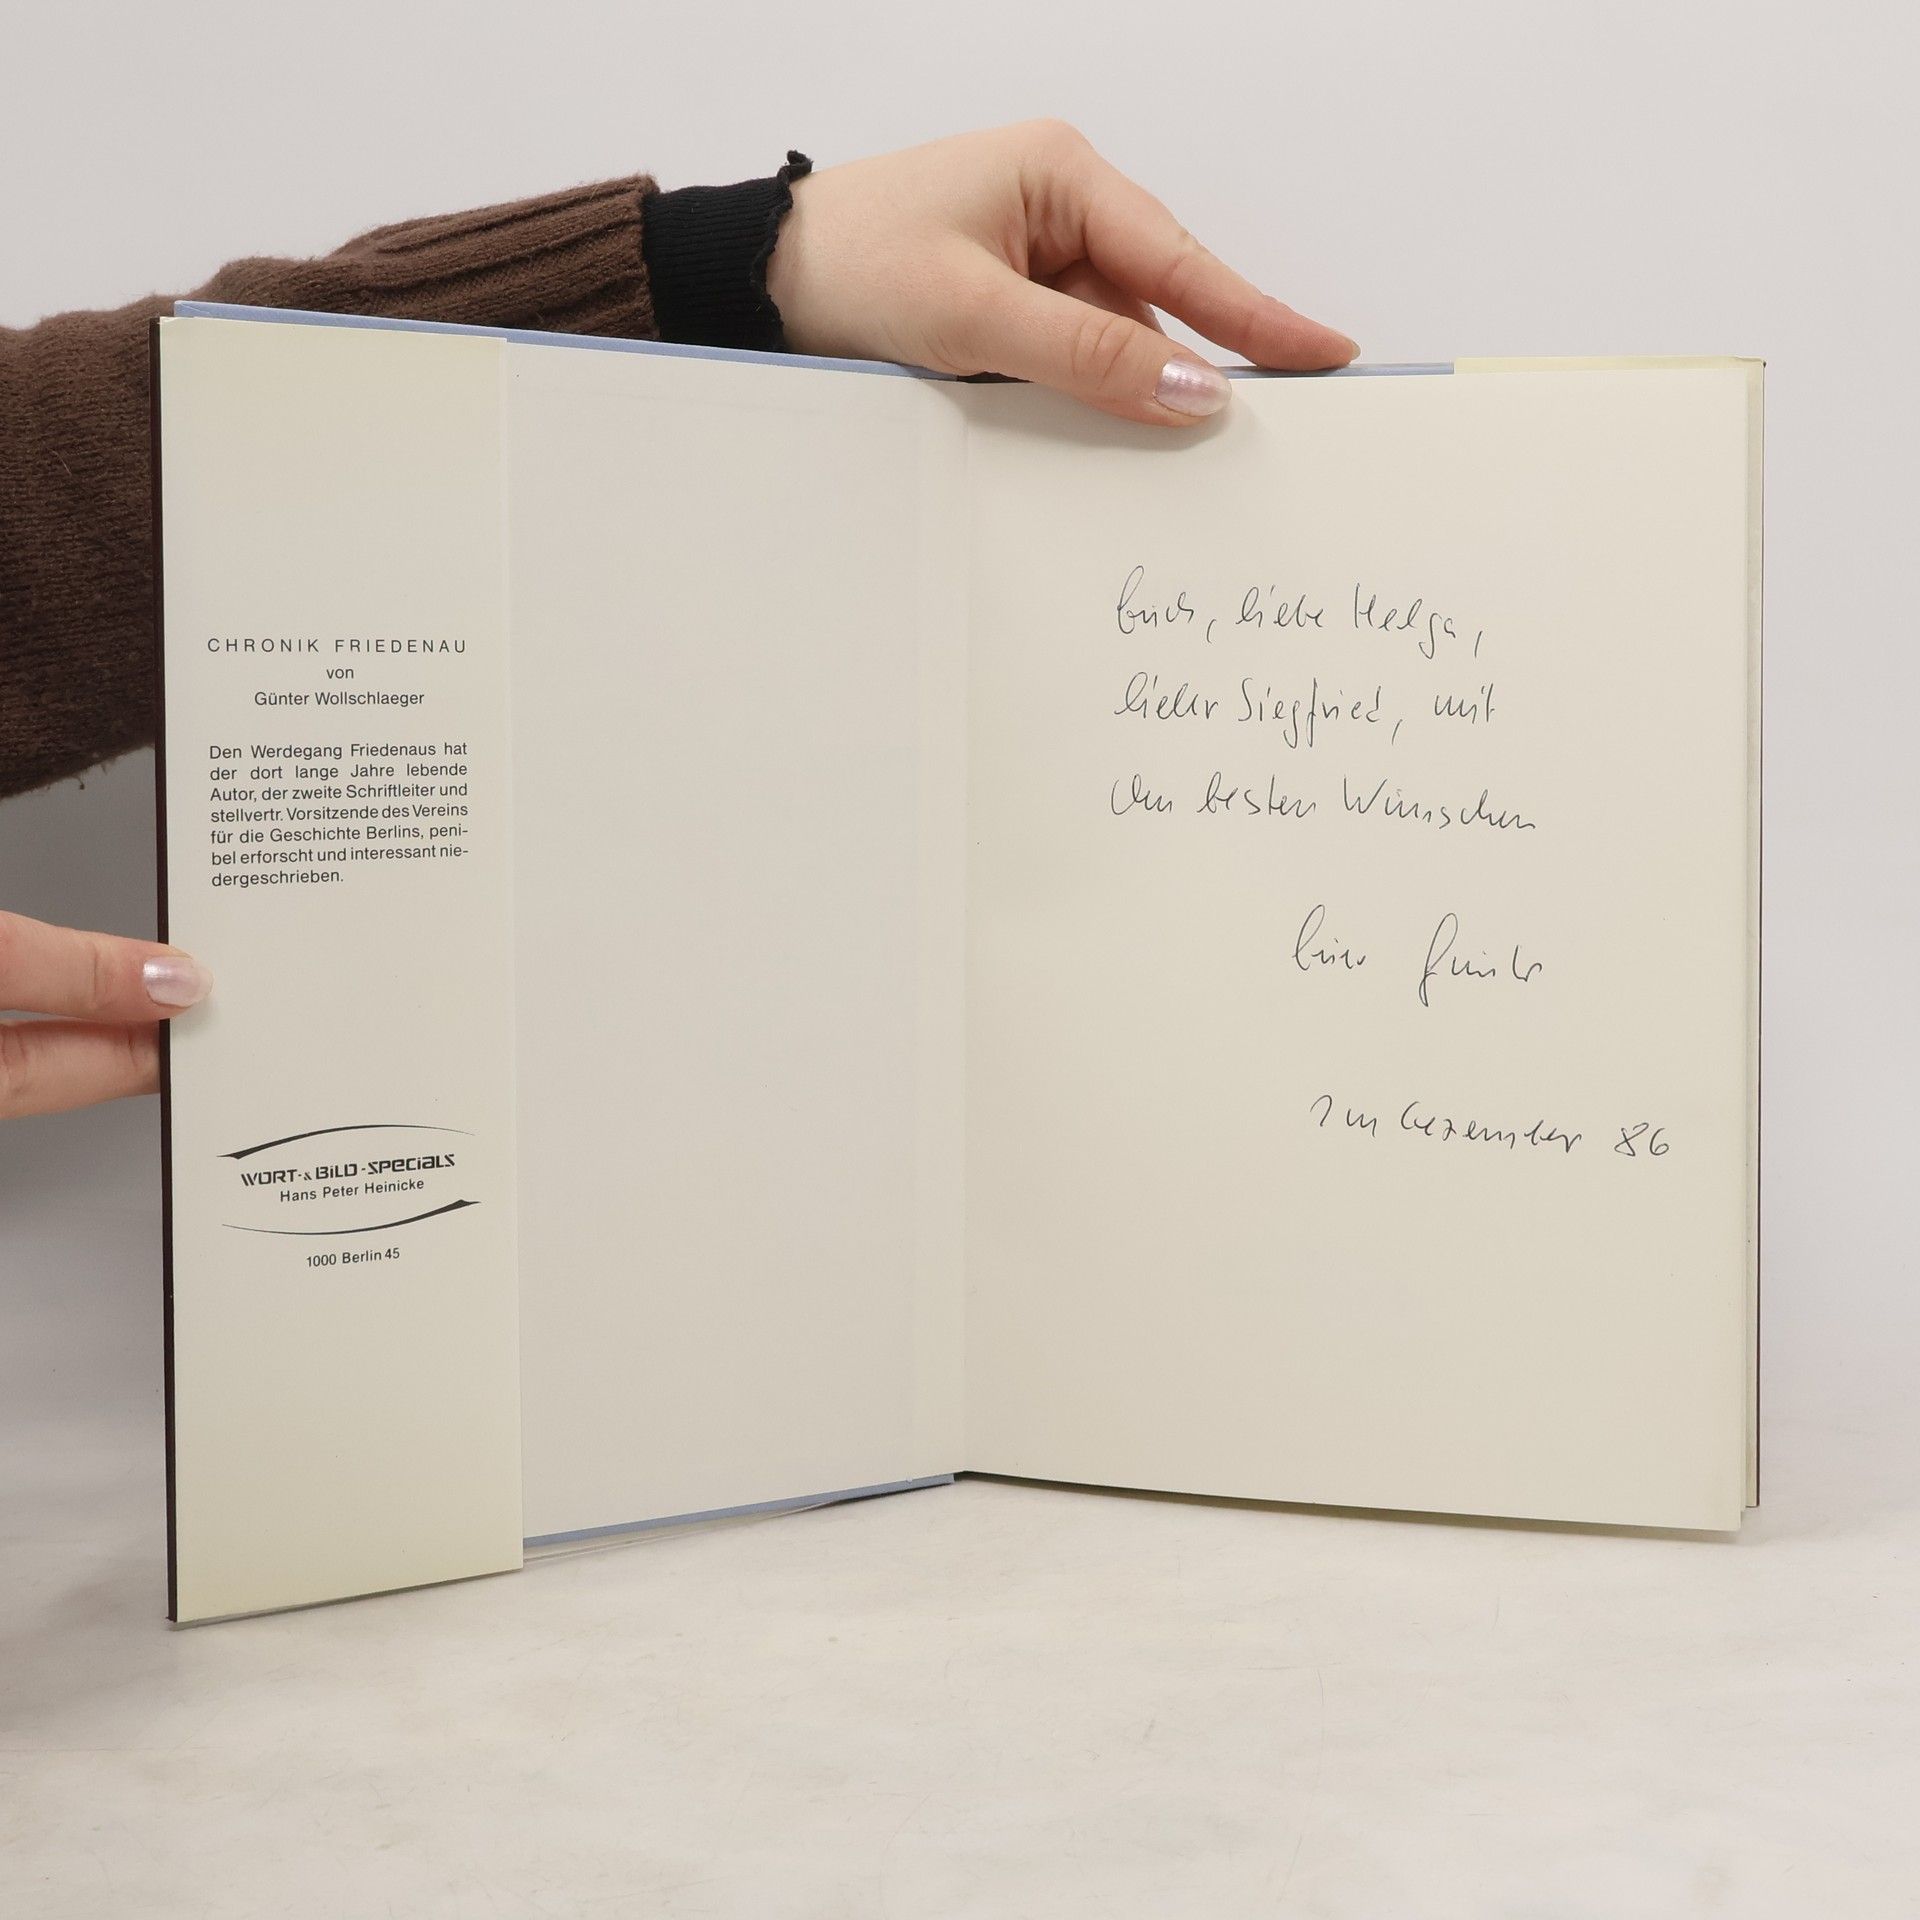 CHRONIK FRIEDENAU
von
Günter Wollschlaeger
Den Werdegang Friedenaus hat
der dort lange Jahre lebende
Autor, der zweite Schriftleiter und
stellvertr. Vorsitzende des Vereins
für die Geschichte Berlins, peni-
bel erforscht und interessant nie-
dergeschrieben.
WORT-& BILD-SPECIALS
Hans Peter Heinicke
1000 Berlin 45
Euch, liebe Helga,
lieber Siegfried, mit
den besten Wünschen
Euer Günter
Im Dezember 86